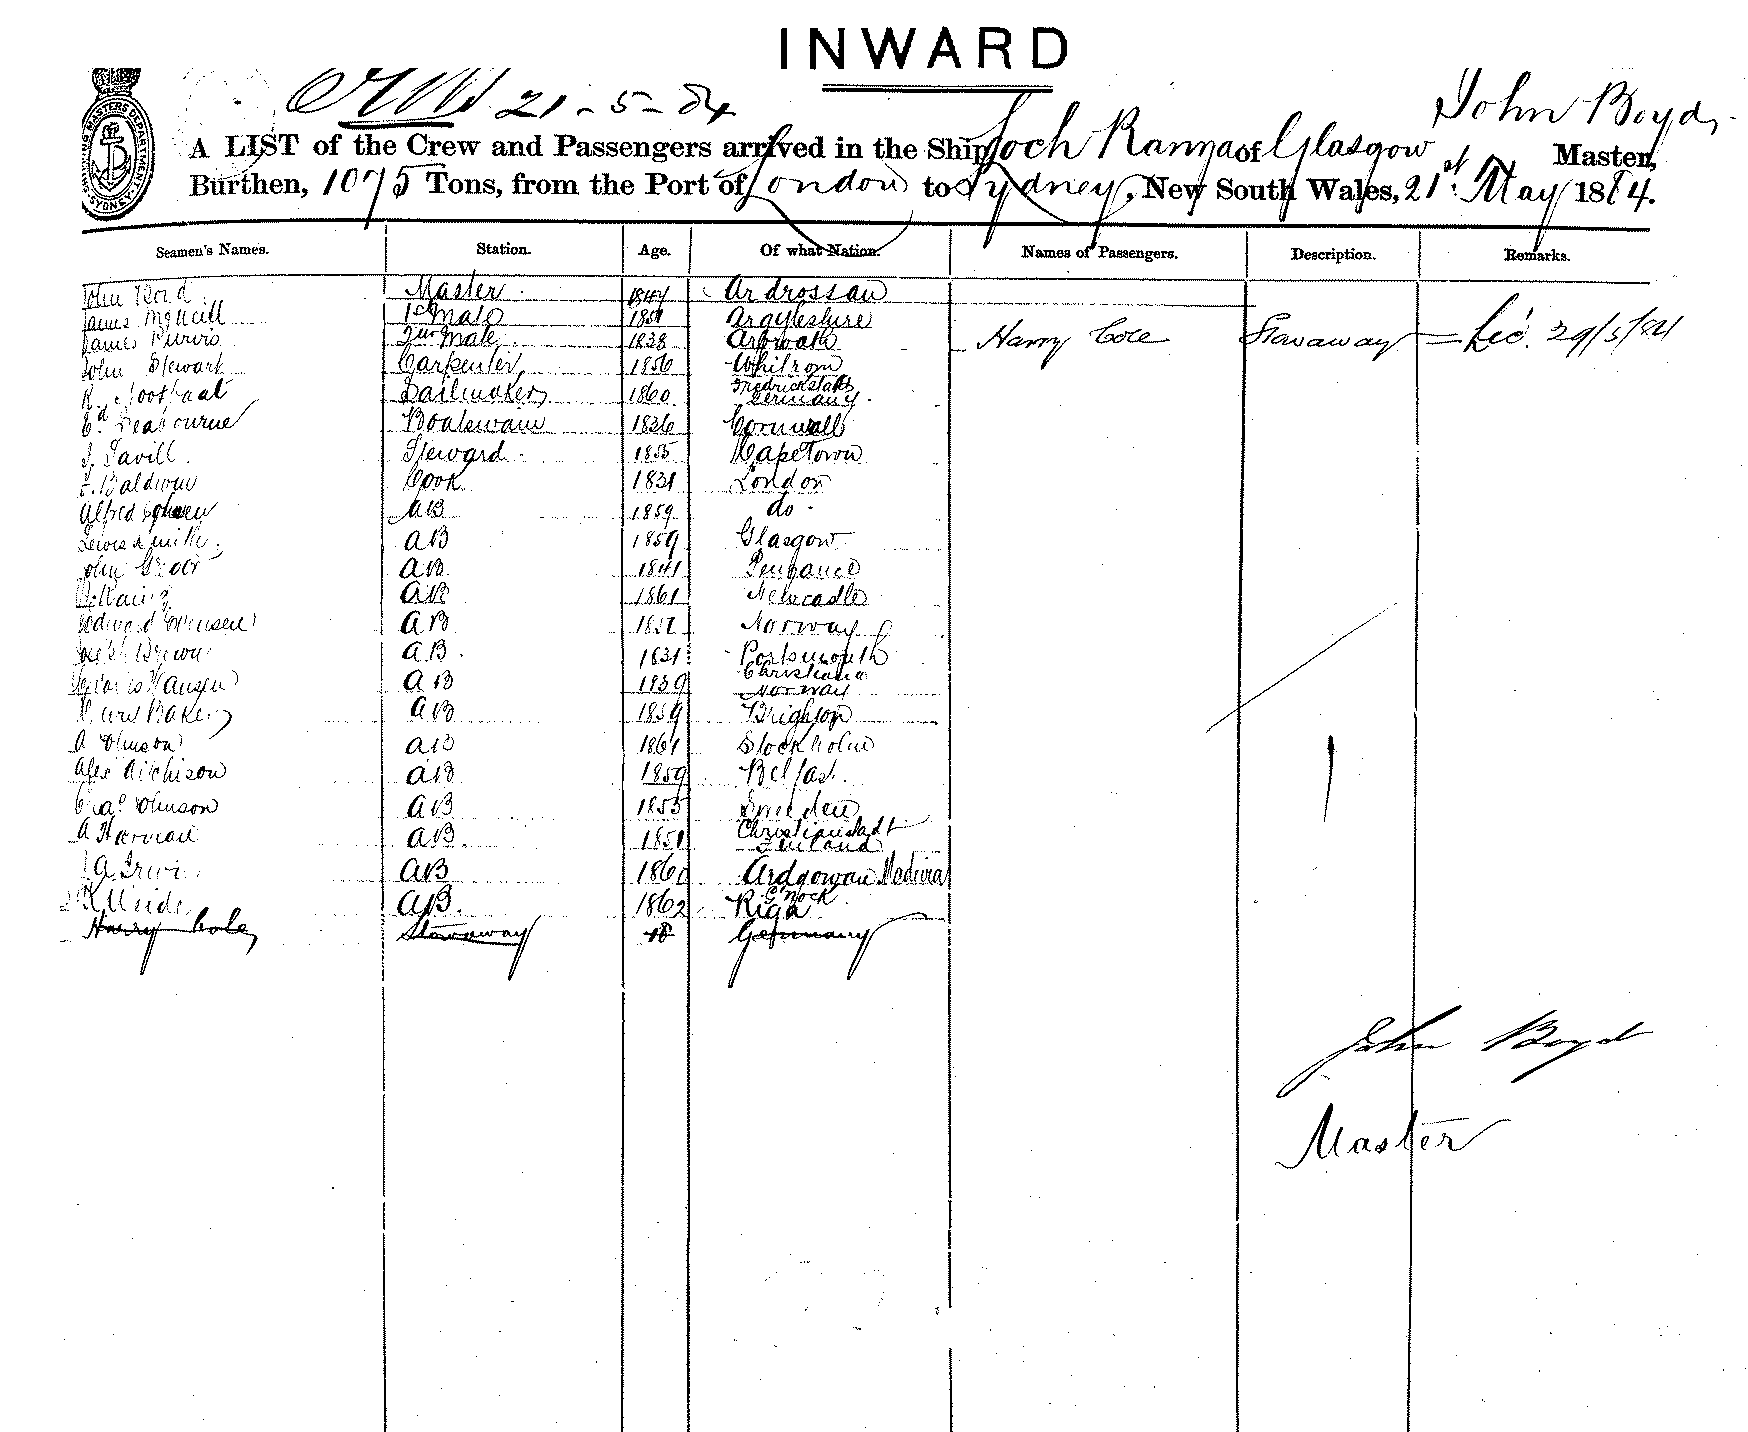 INWARD
21-5-84
John Boyd,
A LIST of the Crew and Passengers arrived in the Ship Loch Ranza of Glasgow Master,
Burthen, 1075 Tons, from the Port of London to Sydney, New South Wales, 21st May 1884.
Seamen's Names. Station. Age. Of what Nation. Names of Passengers. Description. Remarks.
John Boyd Master 1847 Ardrossan
James McNeill 1st Mate 1851 Argyleshire
James Purvis 2nd Mate 1838 Arbroath Harry Cole Stowaway
John Stewart Carpenter 1856 Whitrom
R. Sailmaker 1860 Fredrickstadt Germany
Ed Seabourne Boatswain 1836 Cornwall
J. Savill Steward 1855 Cape Town
F. Baldwin Cook 1831 London
Alfred AB 1859 do
Lewis Smith AB 1859 Glasgow
John AB 1841 Penzance
AB 1861 Newcastle
Edward Evensen AB Norway
Joseph Brown AB 1831 Portsmouth
Hansen AB 1839 Christiania Norway
Baker AB 1859 Brighton
A Johnson AB 1861 Stockholm
Alex Aitchison AB 1859 Belfast
Chas Johnson AB 1855 Sweden
A Herman AB 1851 Christianstadt Finland
A. Irwin AB Ardgowan
AB. 1862 Riga
Harry Cole, Stowaway 18 Germany
John Boyd
Master